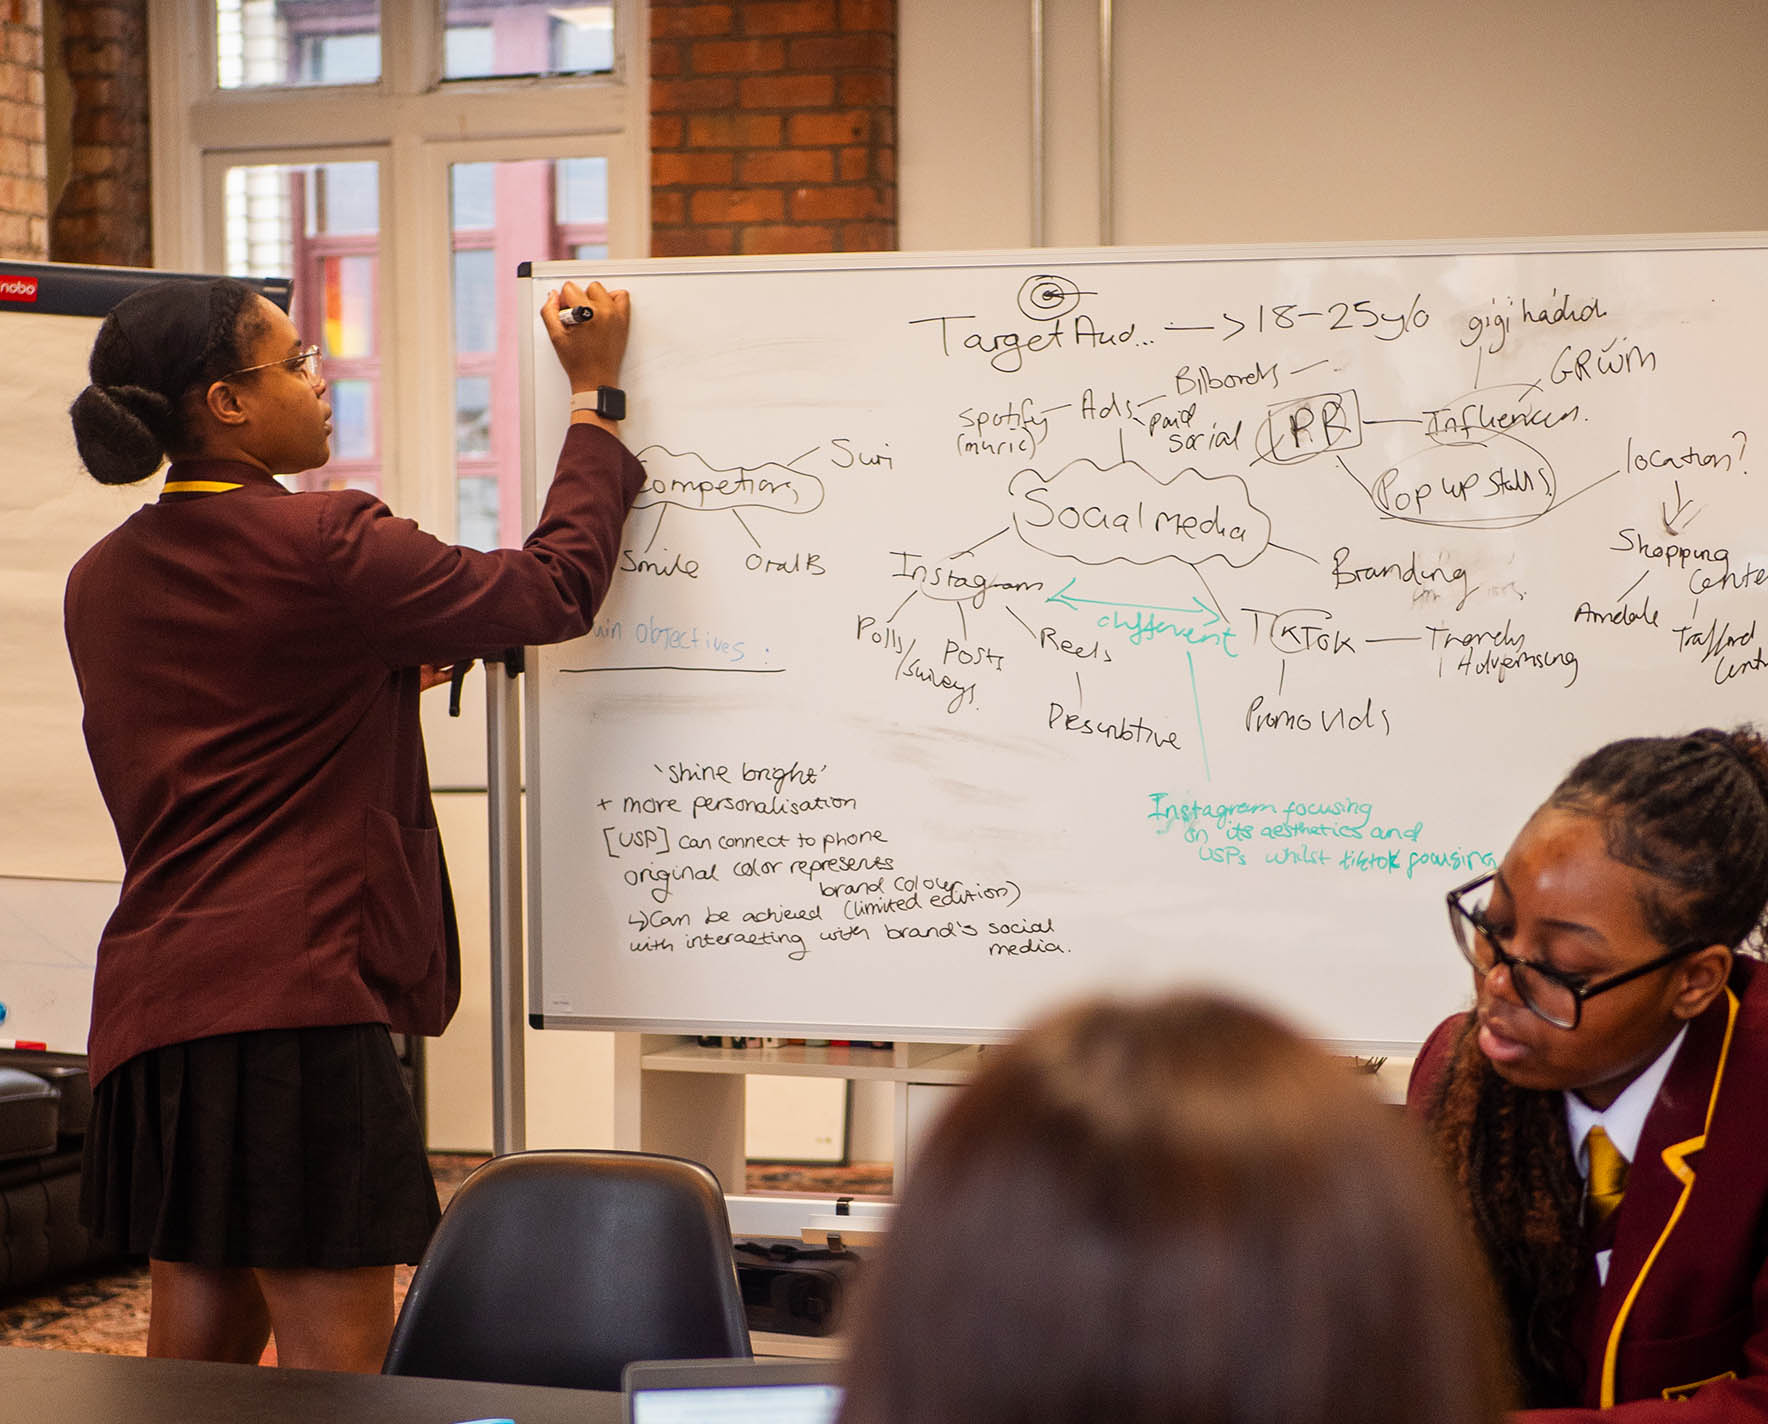 nobo
Target Aud... —> 18-25 y/o
gigi hadid
GRWM
Bilboreds
Spotify
(music)
Ads
paid
social
PR
Influencers.
location?
Pop up stalls
Suri
Competiors
Smile
Oral B
Social media
Shopping
Arndale
Trafford
Branding
Instagram
different
TikTok
Trendy
Advertising
Polls
/surveys
Posts
Reels
Descriptive
Promo vids
objectives :
'shine bright'
+ more personalisation
[USP] can connect to phone
original color represents
brand colour
(limited edition)
↳ Can be achieved
with interacting with brand's social
media.
Instagram focusing
on its aesthetics and
USPs whilst tiktok focusing